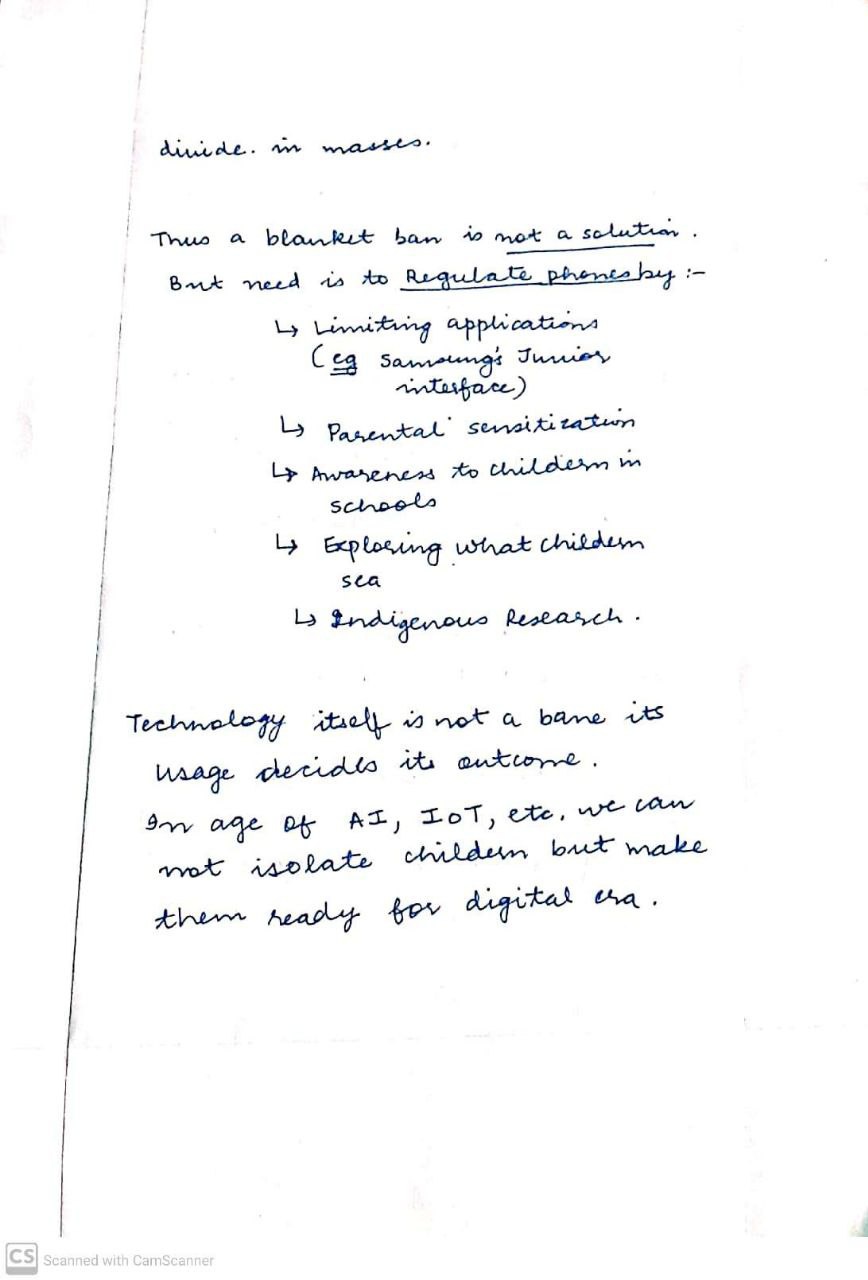 divide. in masses.
Thus a blanket ban is not a solution.
But need is to Regulate phones by :-
↳ Limiting applications
(eg Samsung's Junior
interface)
↳ Parental sensitization
↳ Awareness to childern in
schools
↳ Exploring what childern
sea
↳ Indigenous Research.
Technology itself is not a bane its
usage decides its outcome.
In age of AI, IoT, etc. we can
not isolate childern but make
them ready for digital era.
CS Scanned with CamScanner